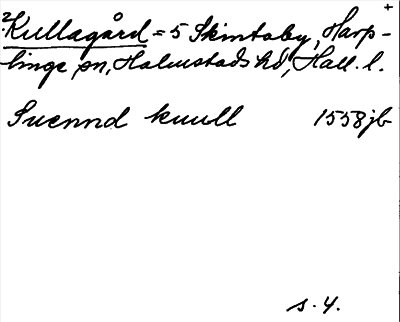 2 Kullagård = 5 Skintaby, Harp-
linge sn, Halmstads hd, Hall. l.
Suennd kuull 1558 jb
s. 4.